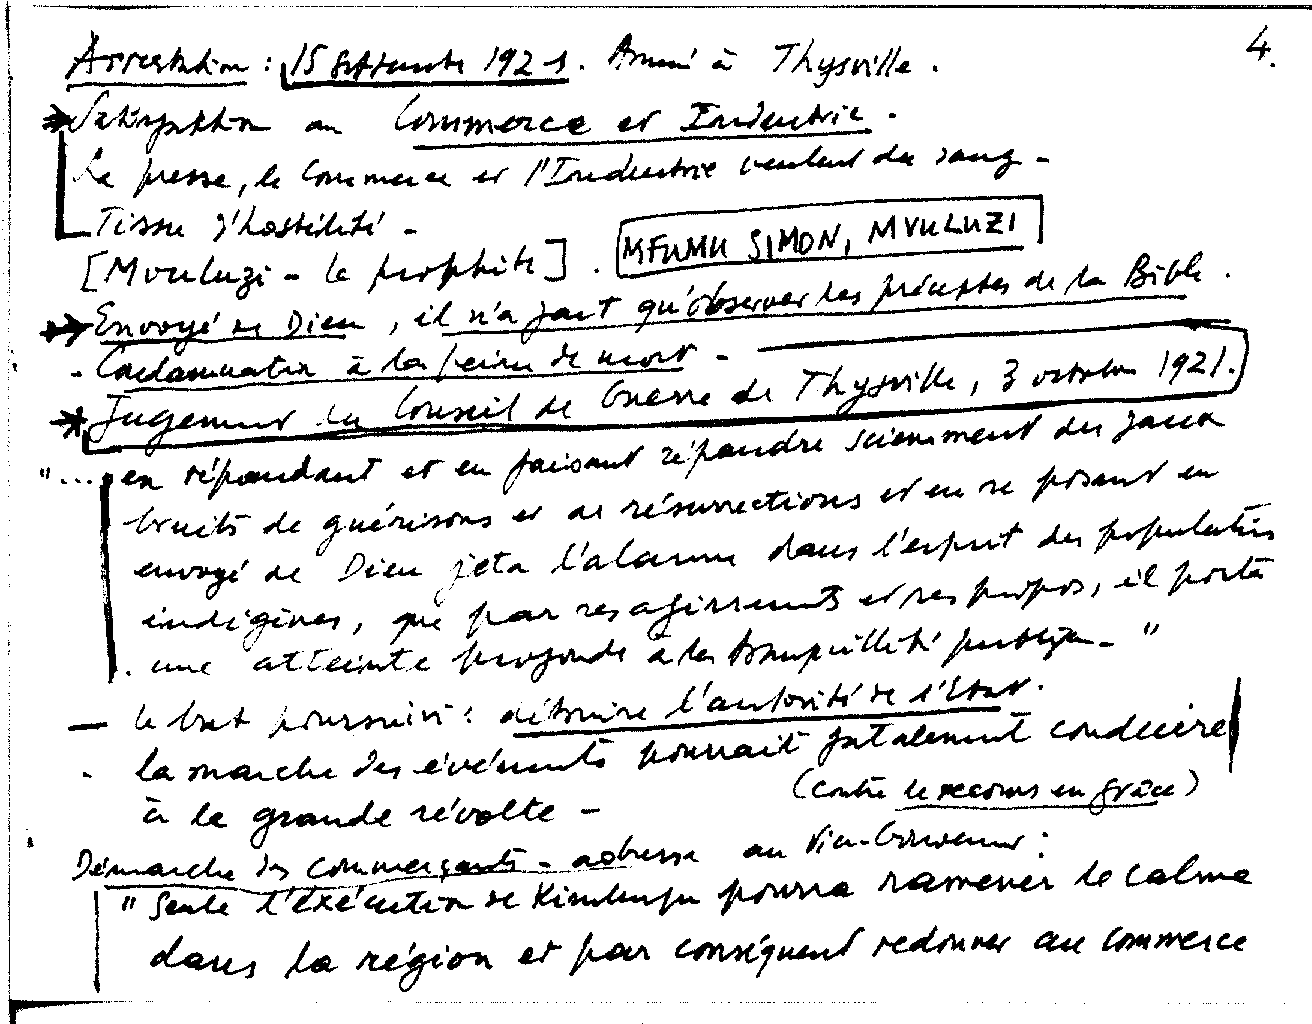 4.
Arrestation : 15 Septembre 1921. Amené à Thysville.
Satisfaction au Commerce et Industrie.
La presse, le Commerce et l'Industrie veulent du sang -
Tissu d'hostilité -
[Mvuluzi - le prophète]. MFUMU SIMON, MVULUZI
Envoyé de Dieu, il n'a fait qu'observer les préceptes de la Bible.
- Condamnation à la peine de mort -
Jugement du Conseil de Guerre de Thysville, 3 octobre 1921.
"... en répandant et en faisant répandre sciemment des faux
bruits de guérisons et de résurrections et en se posant en
envoyé de Dieu jeta l'alarme dans l'esprit des populations
indigènes, que par ses agissements et ses propos, il porta
une atteinte profonde à la tranquillité publique - "
— le but poursuivi : détruire l'autorité de l'Etat.
- la marche des événements pourrait fatalement conduire
à la grande révolte - (contre le recours en grâce)
Démarche des commerçants - adresse au Vice-Gouverneur :
" Seule l'exécution de Kimbangu pourra ramener le calme
dans la région et par conséquent redonner au commerce